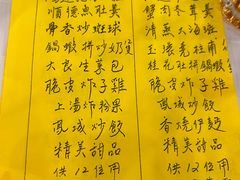 順德魚肚羹
骨香炒班球
鍋蝦拼炒奶
大良生菜包
脆皮炸子雞
上湯炸粉果
鳳城炒飯
精美甜品
供12位用
蟹肉冬茸羹
清蒸大海斑
脆皮炸子雞
鳳城炒飯
香燒伊麵
精美甜品
供12位用